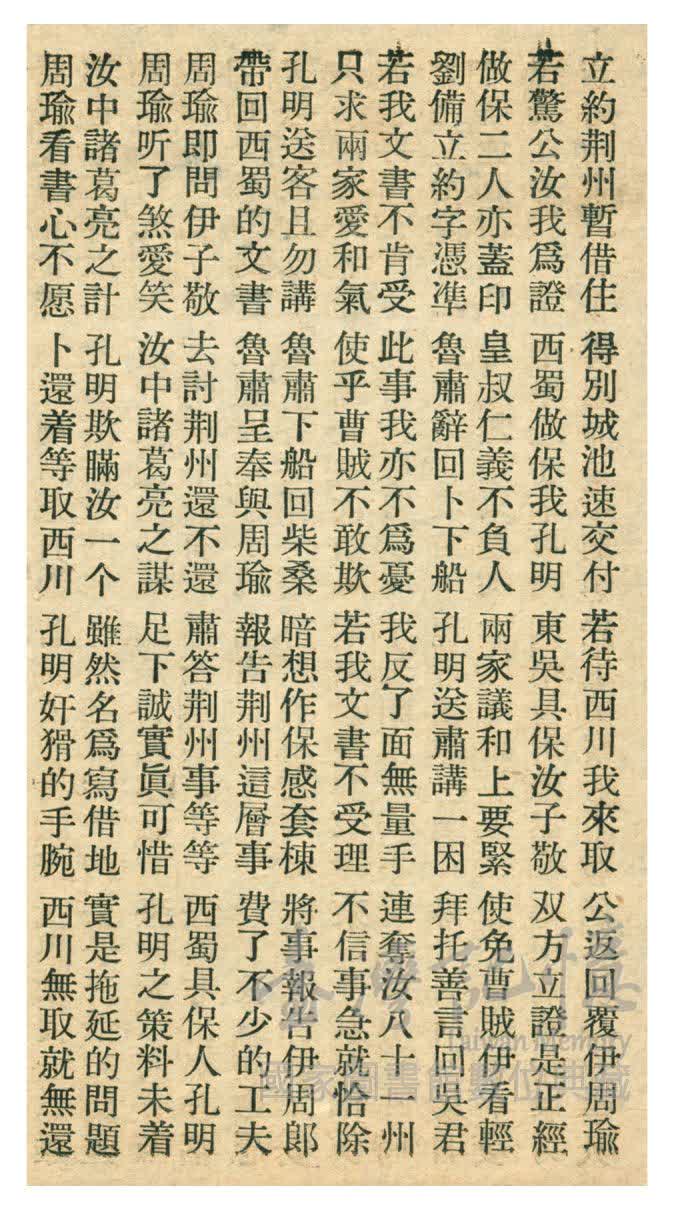 立約荆州暫借住 得別城池速交付 若待西川我來取 公返回覆伊周瑜
若驚公汝我爲證 西蜀做保我孔明 東吳具保汝子敬 双方立證是正經
做保二人亦蓋印 皇叔仁義不負人 兩家議和上要緊 使免曹賊伊看輕
劉備立約字憑準 魯肅辭回卜下船 孔明送肅講一困 拜托善言回吳君
若我文書不肯受 此事我亦不爲憂 我反了面無量手 連奪汝八十一州
只求兩家愛和氣 使乎曹賊不敢欺 若我文書不受理 不信事急就恰除
孔明送客且勿講 魯肅下船回柴桑 暗想作保感套棟 將事報告伊周郎
帶回西蜀的文書 魯肅呈奉與周瑜 報告荆州這層事 費了不少的工夫
周瑜即問伊子敬 去討荆州還不還 肅答荆州事等等 西蜀具保人孔明
周瑜听了煞愛笑 汝中諸葛亮之謀 足下誠實眞可惜 孔明之策料未着
汝中諸葛亮之計 孔明欺瞞汝一个 雖然名爲寫借地 實是拖延的問題
周瑜看書心不愿 卜還着等取西川 孔明奸猾的手腕 西川無取就無還
臺灣記憶
Taiwan Memory
國家圖書館數位典藏